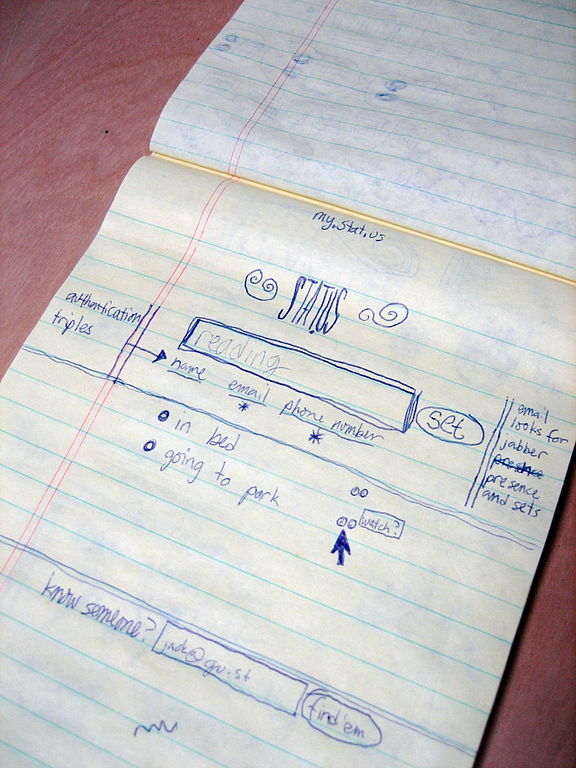 my.stat.us
STAT.US
authentication
triples
reading
name
email
phone number
set
email
looks for
jabber
presence
presence
and sets
in bed
going to park
watch?
know someone?
find'em